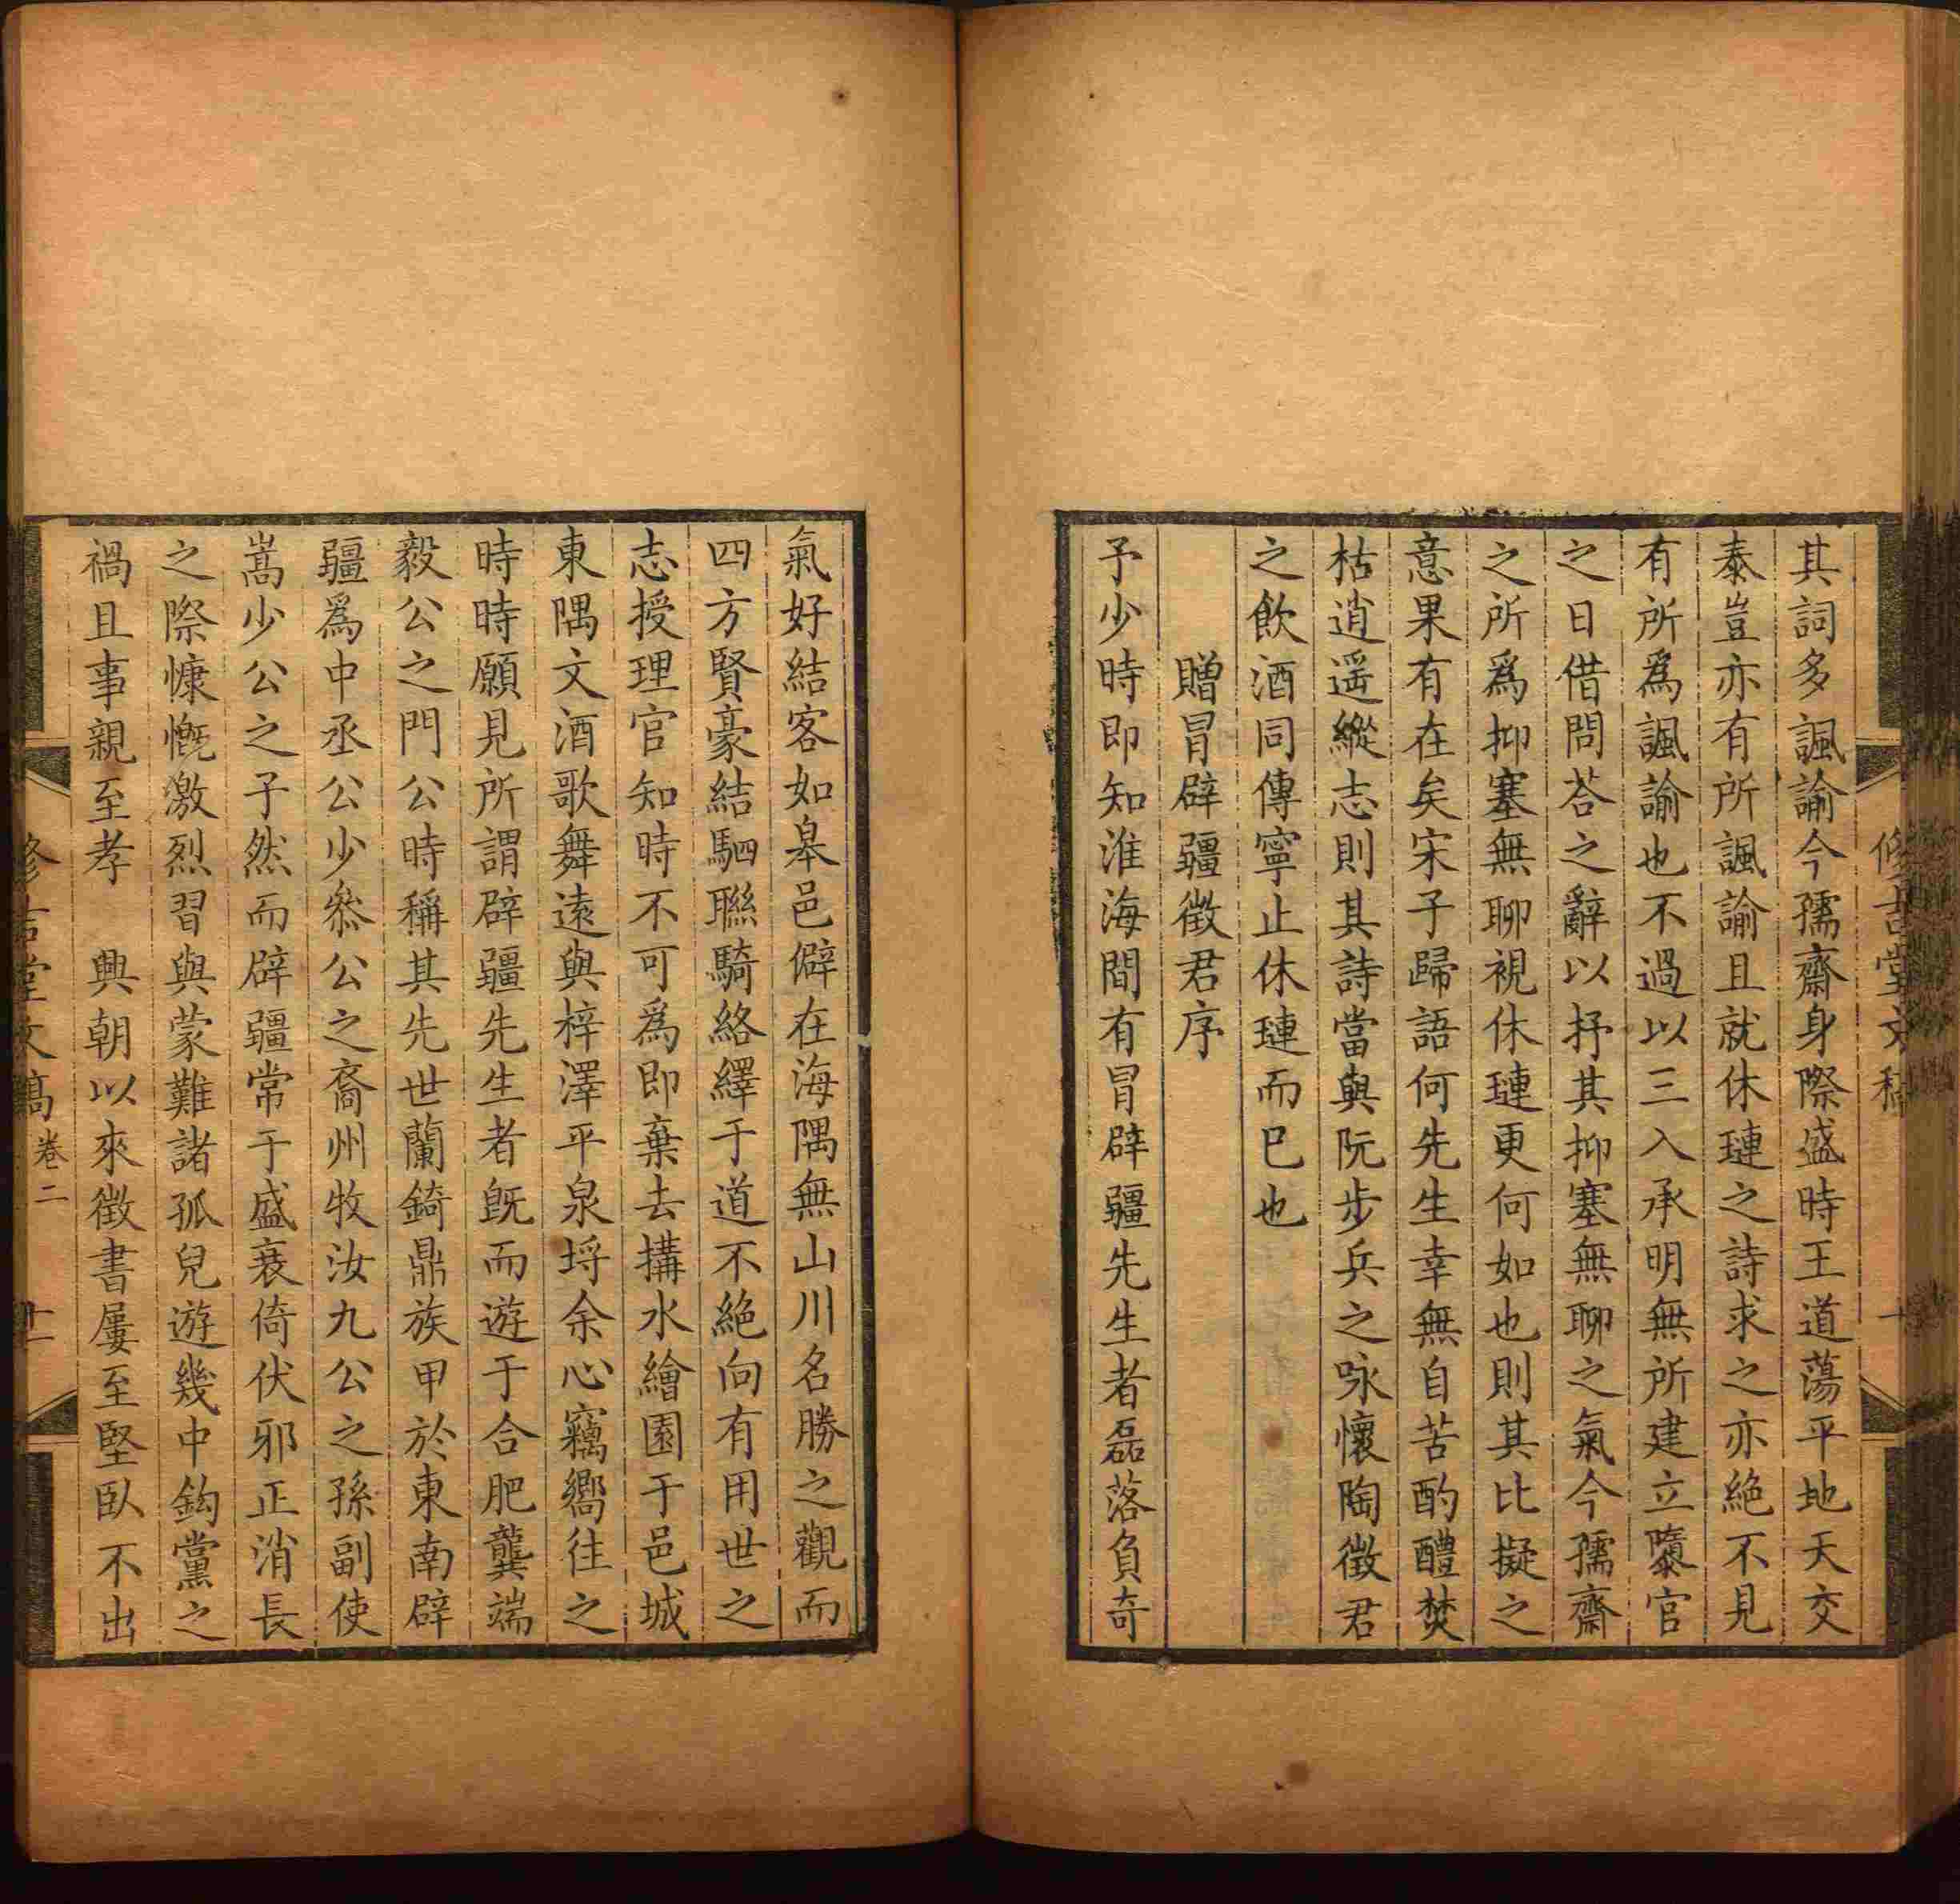 其詞多諷諭今孺齋身際盛時王道蕩平地天交
泰豈亦有所諷諭且就休璉之詩求之亦絕不見
有所爲諷諭也不過以三入承明無所建立隳官
之日借問荅之辭以抒其抑塞無聊之氣今孺齋
之所爲抑塞無聊視休璉更何如也則其比擬之
意果有在矣宋子歸語何先生幸無自苦酌醴焚
枯逍遥縱志則其詩當與阮步兵之咏懷陶徵君
之飲酒同傳寧止休璉而巳也
贈冒辟疆徵君序
予少時即知淮海間有冒辟疆先生者磊落負奇
氣好結客如皋邑僻在海隅無山川名勝之觀而
四方賢豪結駟聯騎絡繹于道不絕向有用世之
志授理官知時不可爲即棄去搆水繪園于邑城
東隅文酒歌舞遠與梓澤平泉埓余心竊嚮往之
時時願見所謂辟疆先生者旣而遊于合肥龔端
毅公之門公時稱其先世蘭錡鼎族甲於東南辟
疆爲中丞公少叅公之裔州牧汝九公之孫副使
嵩少公之子然而辟疆常于盛衰倚伏邪正消長
之際慷慨激烈習與蒙難諸孤兒遊幾中鈎黨之
禍且事親至孝 興朝以來徵書屢至堅臥不出
堂文稿 卷二 十一